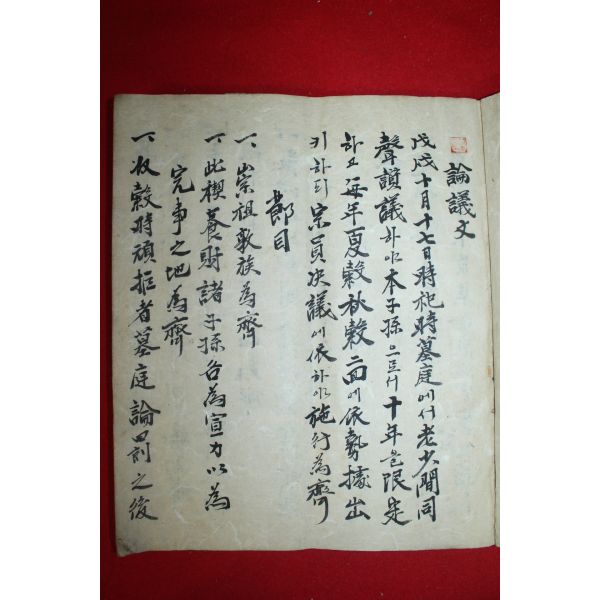 論議文
戊戌十月十七日時祀時墓庭에서老少間同
聲讃議하야本子孫으로서十年을限定
하고每年夏穀秋穀二回에依勢據出
키하되宗員決議에依하야施行為齊
節目
一、崇祖敦族為齊
一、此稧養財諸子孫各為宣力以為
完事之地為齊
一、收穀時頑拒者墓庭論罰之後